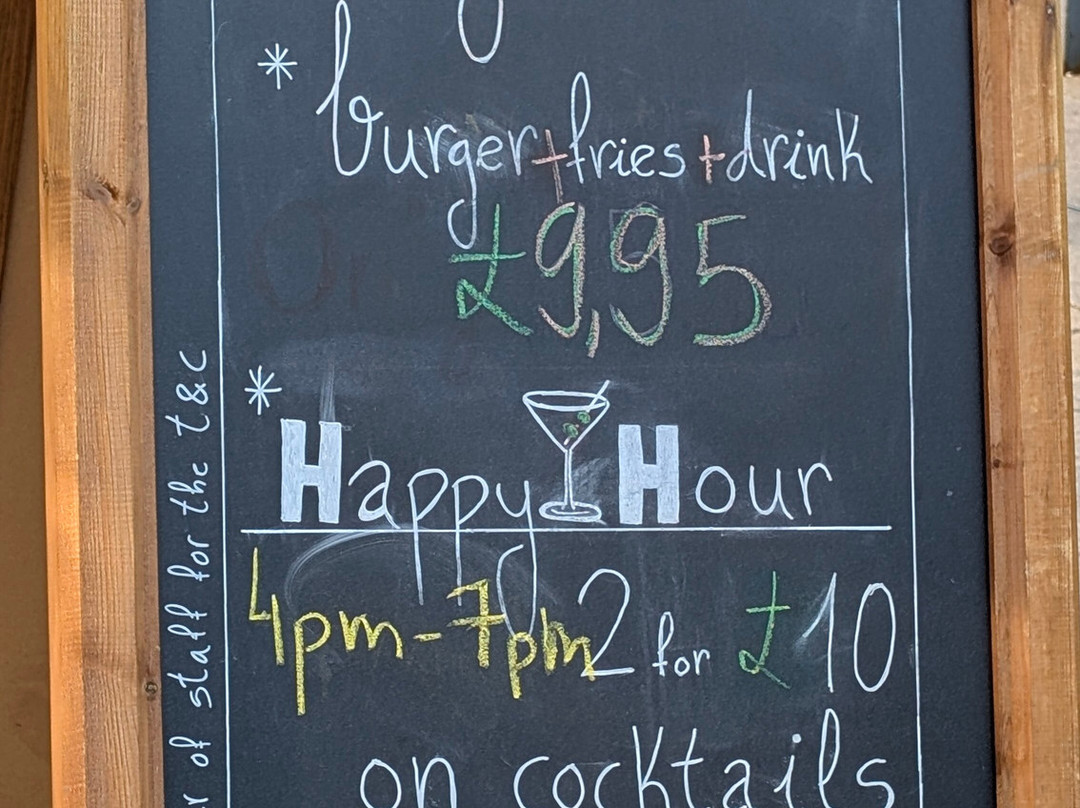 * burger+fries+drink
£9,95
* Happy Hour
4pm-7pm 2 for £10
on cocktails
of staff for the t&c